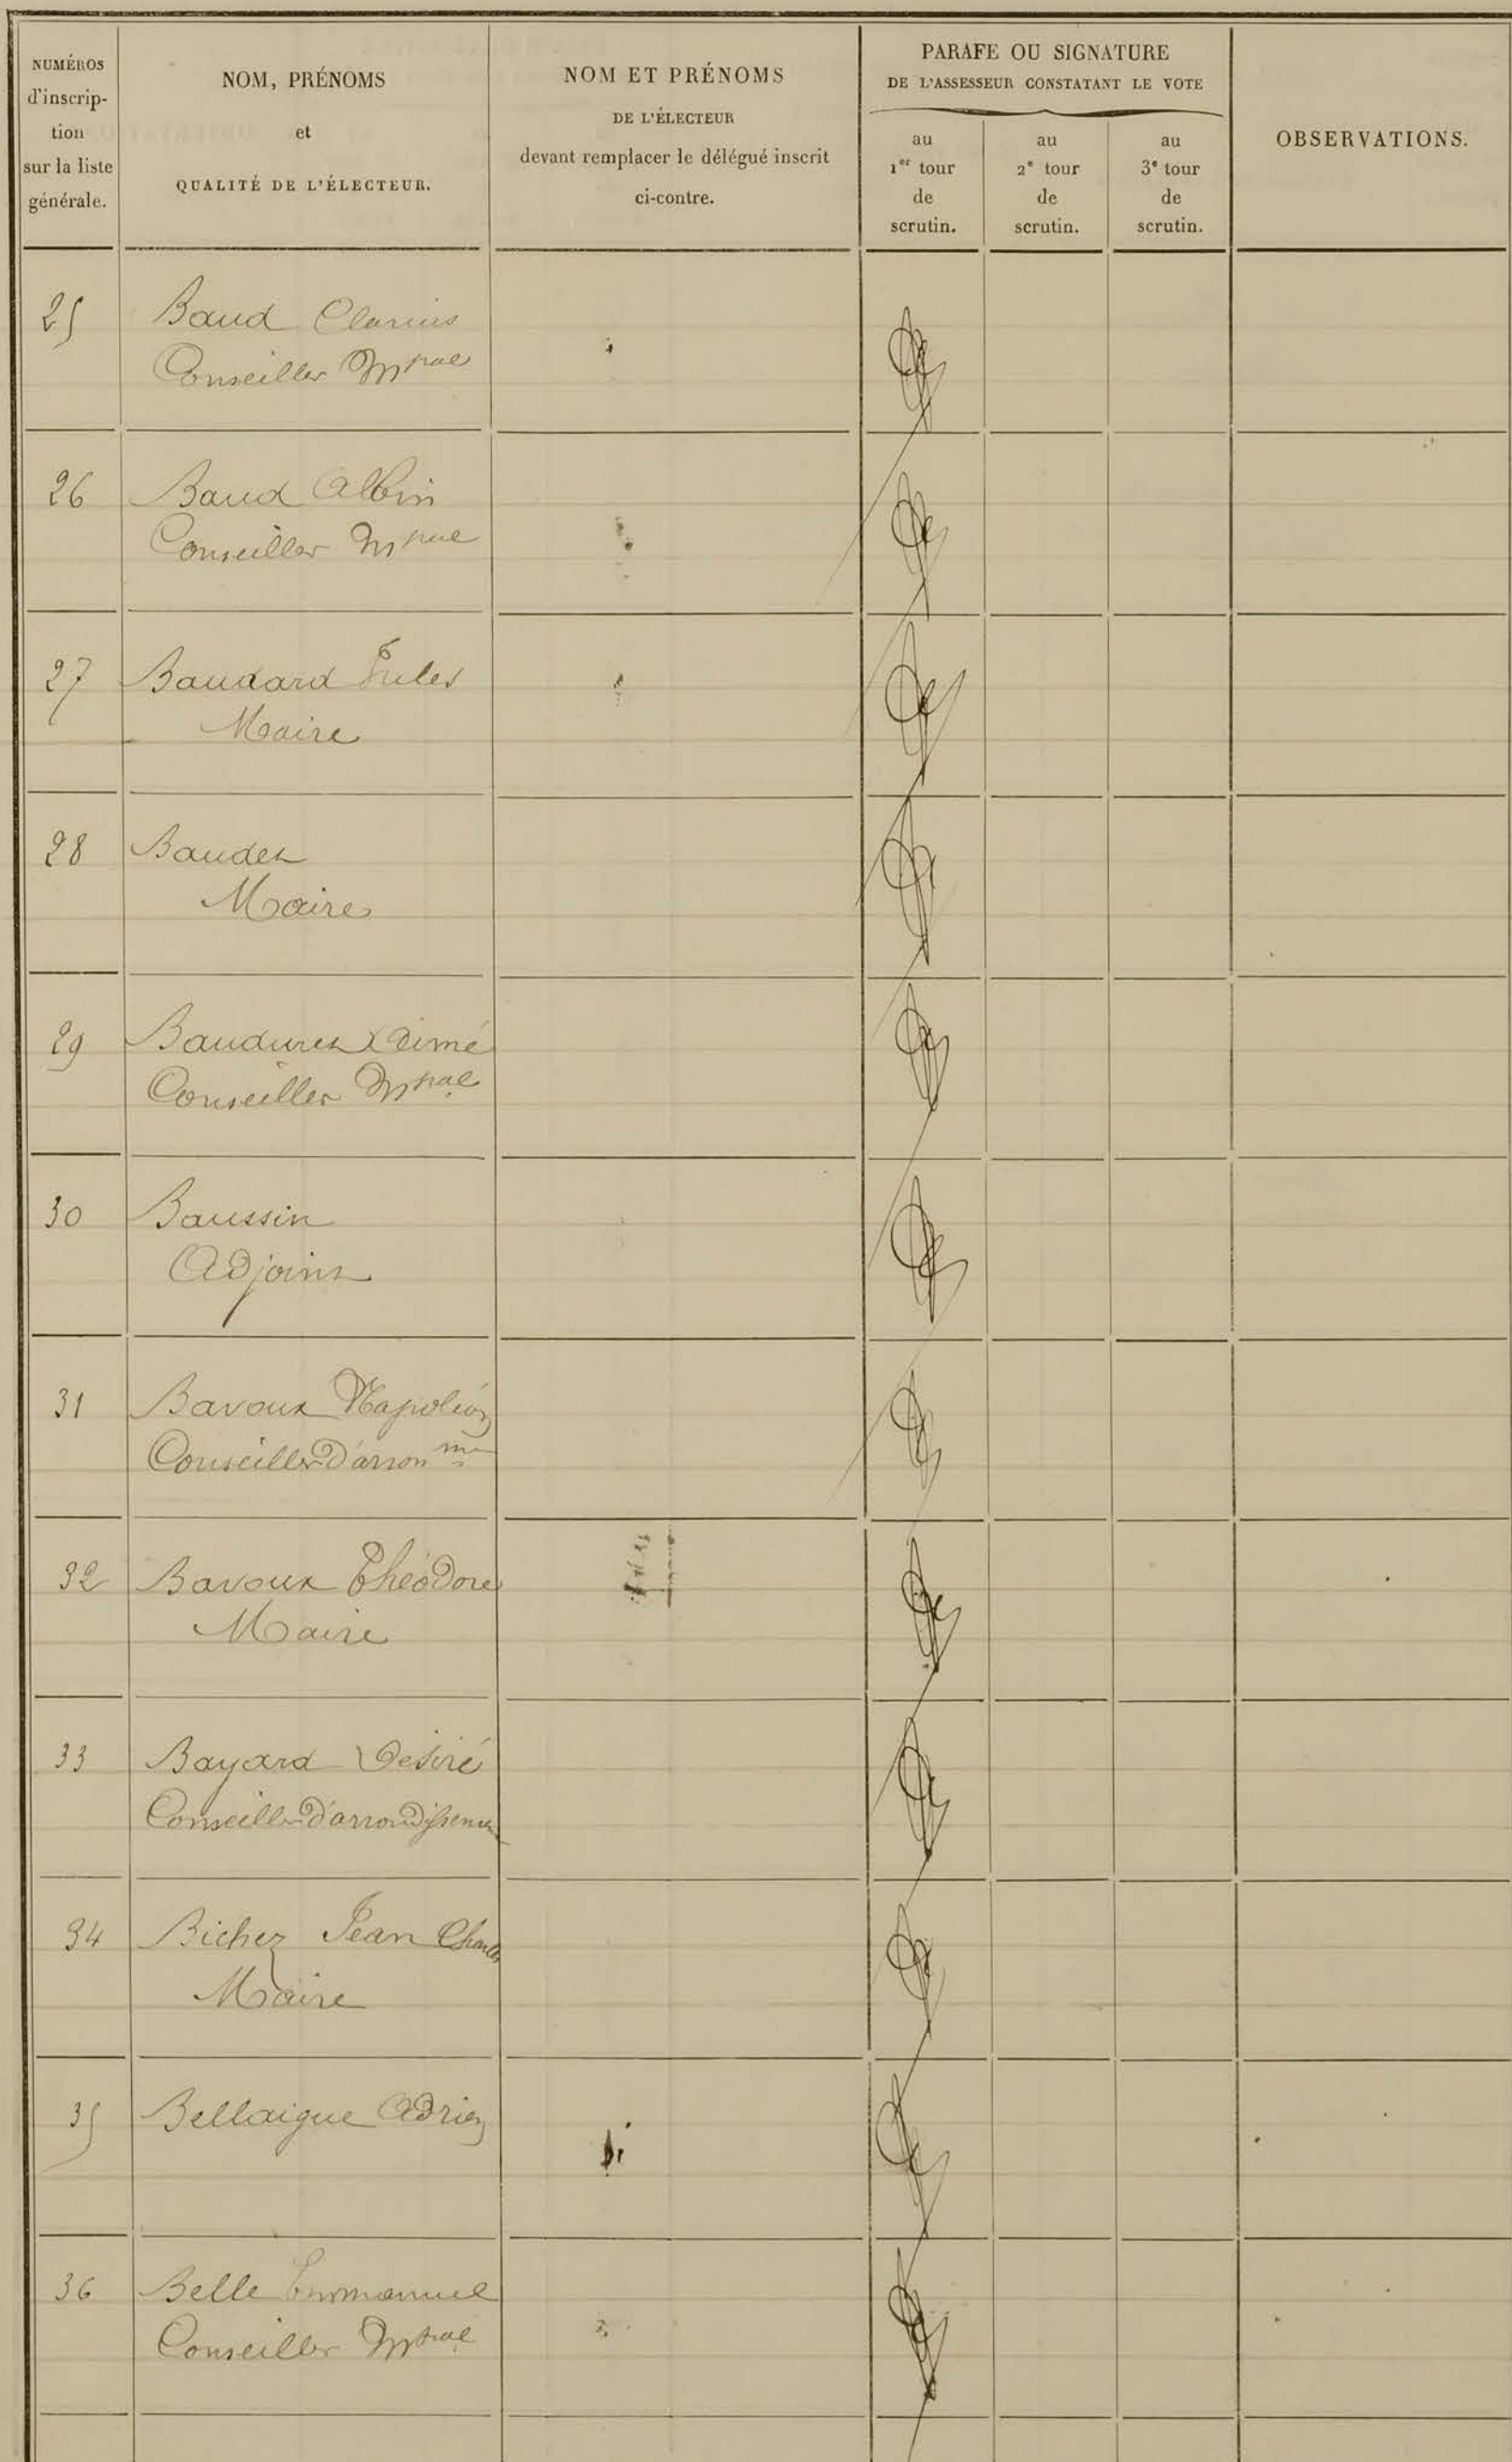 NUMÉROS
d'inscrip-
tion
sur la liste
générale.
NOM, PRÉNOMS
et
QUALITÉ DE L'ÉLECTEUR.
NOM ET PRÉNOMS
DE L'ÉLECTEUR
devant remplacer le délégué inscrit
ci-contre.
PARAFE OU SIGNATURE
DE L'ASSESSEUR CONSTATANT LE VOTE
au
1er tour
de
scrutin.
au
2e tour
de
scrutin.
au
3e tour
de
scrutin.
OBSERVATIONS.
25 Baud Clarius
Conseiller Mpal
26 Baud Albin
Conseiller Mpal
27 Baudard Jules
Maire
28 Baudet
Maire
29 Bauduret Aimé
Conseiller Mpal
30 Baussin
Adjoint
31 Bavoux Napoléon
Conseiller d'arron
32 Bavoux Théodore
Maire
33 Bayard Désiré
Conseiller d'arrondissement
34 Bichet Jean Charles
Maire
35 Bellaigue Adrien
36 Belle Emmanuel
Conseiller Mpal